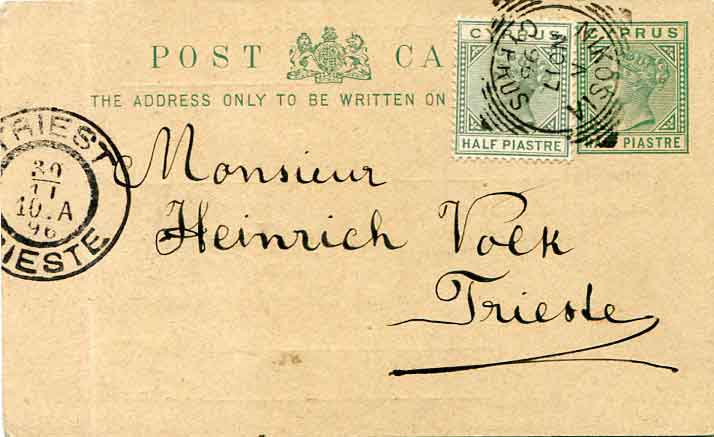 POST CA
CYPRUS
CYPRUS
THE ADDRESS ONLY TO BE WRITTEN ON
HALF PIASTRE
PIASTRE
NIKOSIA
A
NO 17
96
CYPRUS
TRIEST
30
11
10.A
96
TRIESTE
Monsieur
Heinrich Volk
Trieste